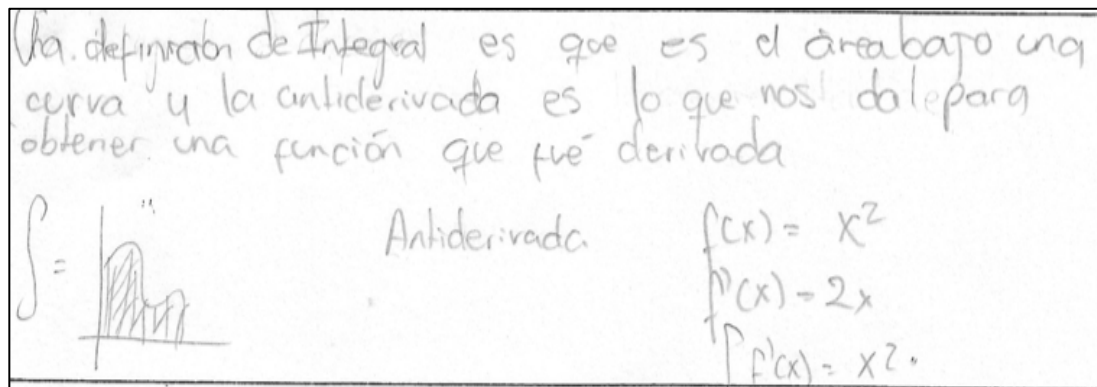 Una definición de Integral es que es el área bajo una
curva y la antiderivada es lo que nos da para
obtener una función que fué derivada
∫ =
Antiderivada
f(x) = x²
f'(x) = 2x
∫ f'(x) = x².